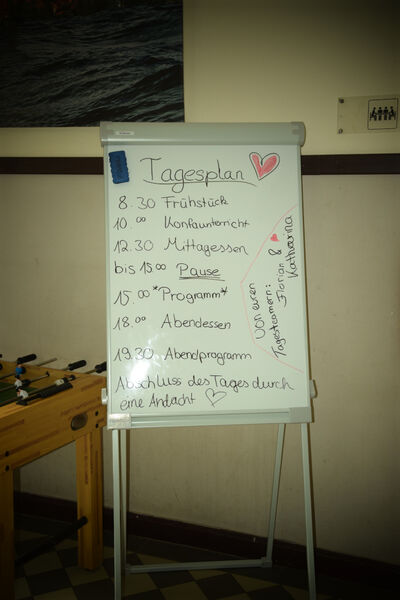 Tagesplan
8.30 Frühstück
10.00 Konfaunterricht
12.30 Mittagessen
bis 15.00 Pause
15.00 *Programm*
18.00 Abendessen
19.30 Abendprogramm
Abschluss des Tages durch
eine Andacht
von euren
Tagesteamern:
Florian &
Katharina